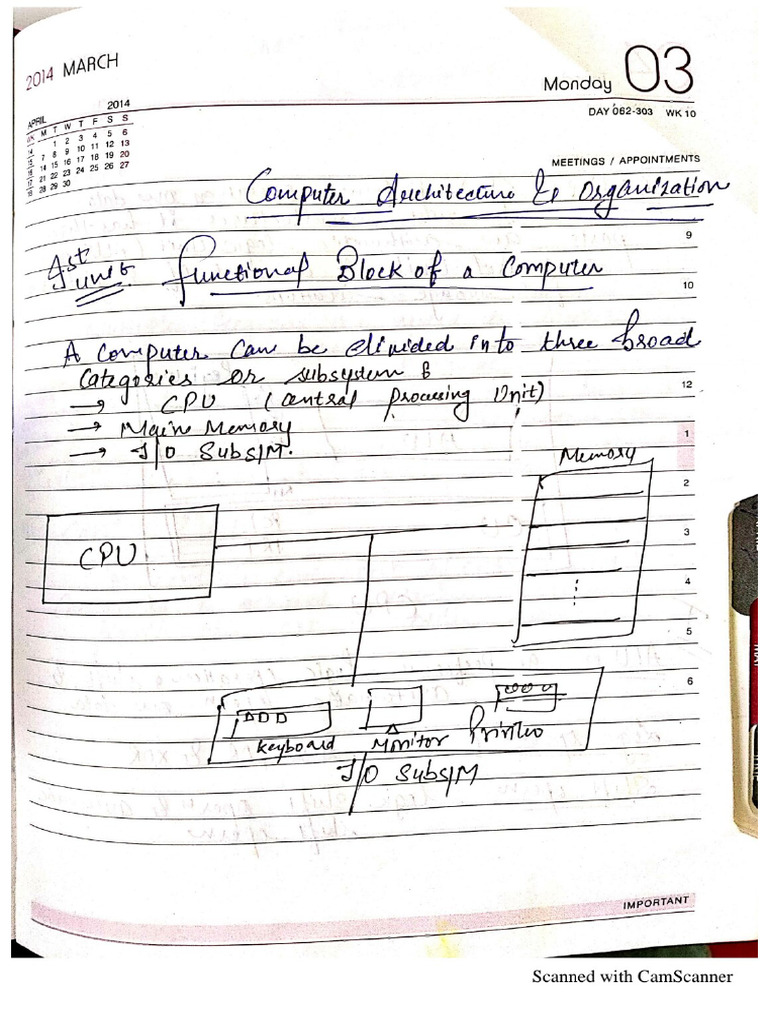 2014 MARCH
Monday 03
DAY 062-303 WK 10
APRIL 2014
WK M T W T F S S
14 1 2 3 4 5 6
15 7 8 9 10 11 12 13
16 14 15 16 17 18 19 20
17 21 22 23 24 25 26 27
18 28 29 30
MEETINGS / APPOINTMENTS
Computer Architecture & Organization
9
1st unit Functional Block of a Computer
10
A Computer Can be divided into three broad
Categories or subsystem
12
→ CPU (Central Processing Unit)
→ Main Memory
1
→ I/O Subs/M.
Memory
2
3
CPU
4
5
6
Keyboard Monitor Printer
I/O Subs/M
IMPORTANT
Scanned with CamScanner